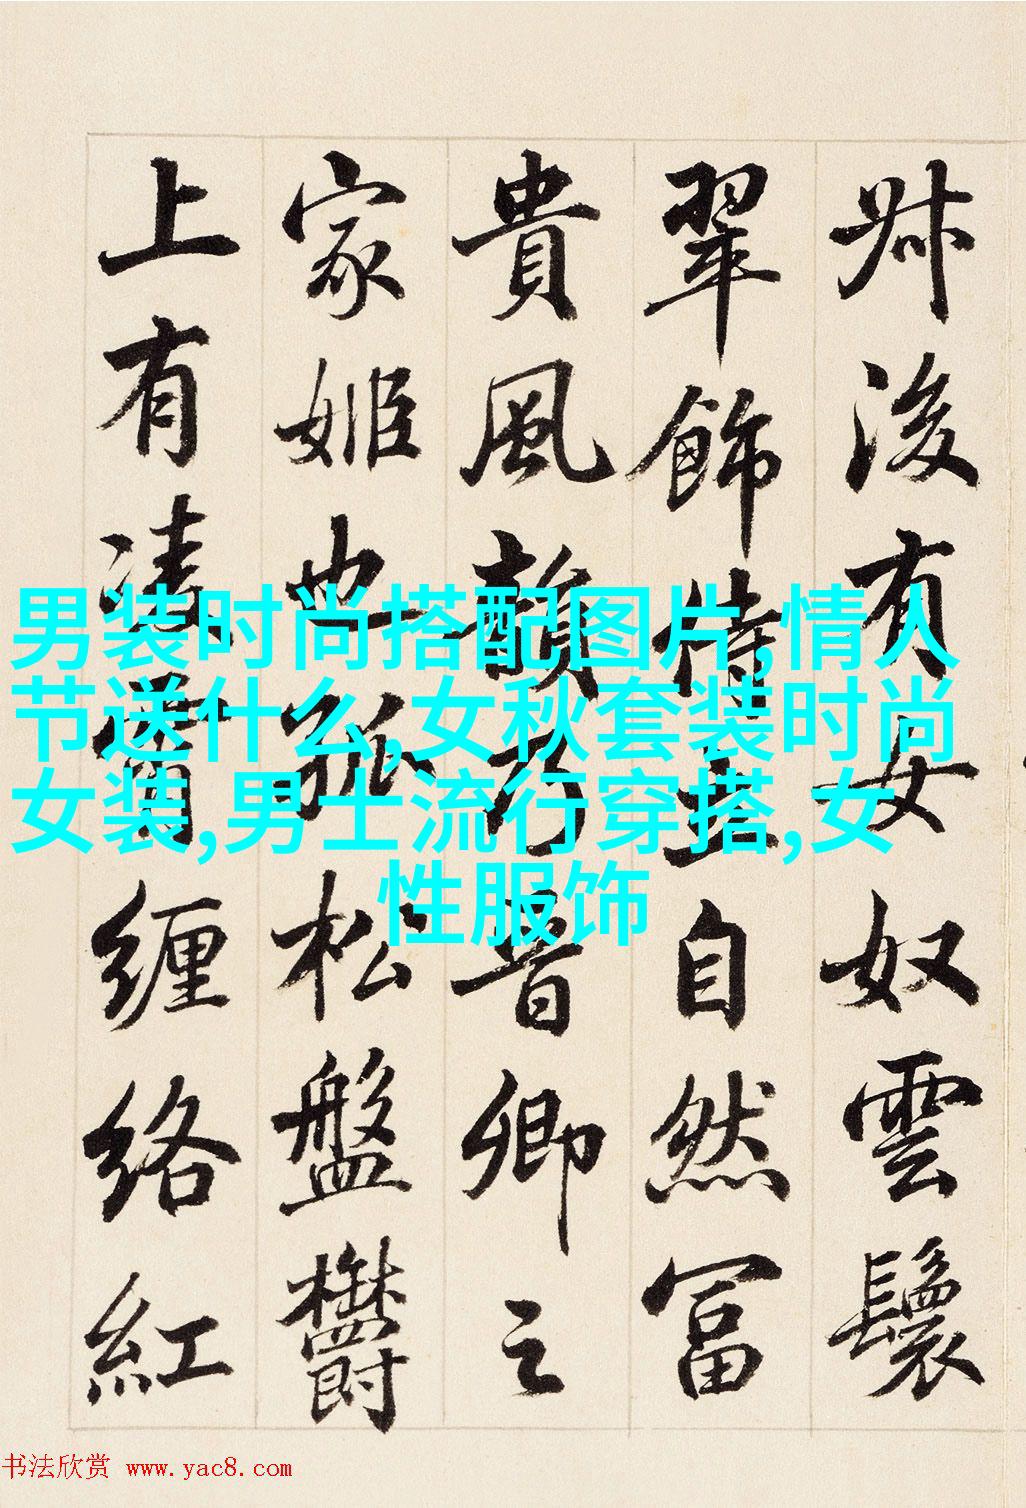 叔後有女奴雲鬟
翠飾情意自然富
貴風韻乃晋卿之
家姬也孤松盤欝
上有凌霄纏络紅
男装时尚搭配图片,情人
节送什么,女秋套装时尚
女装,男士流行穿搭,女
性服饰
书法欣赏 www.yac8.com